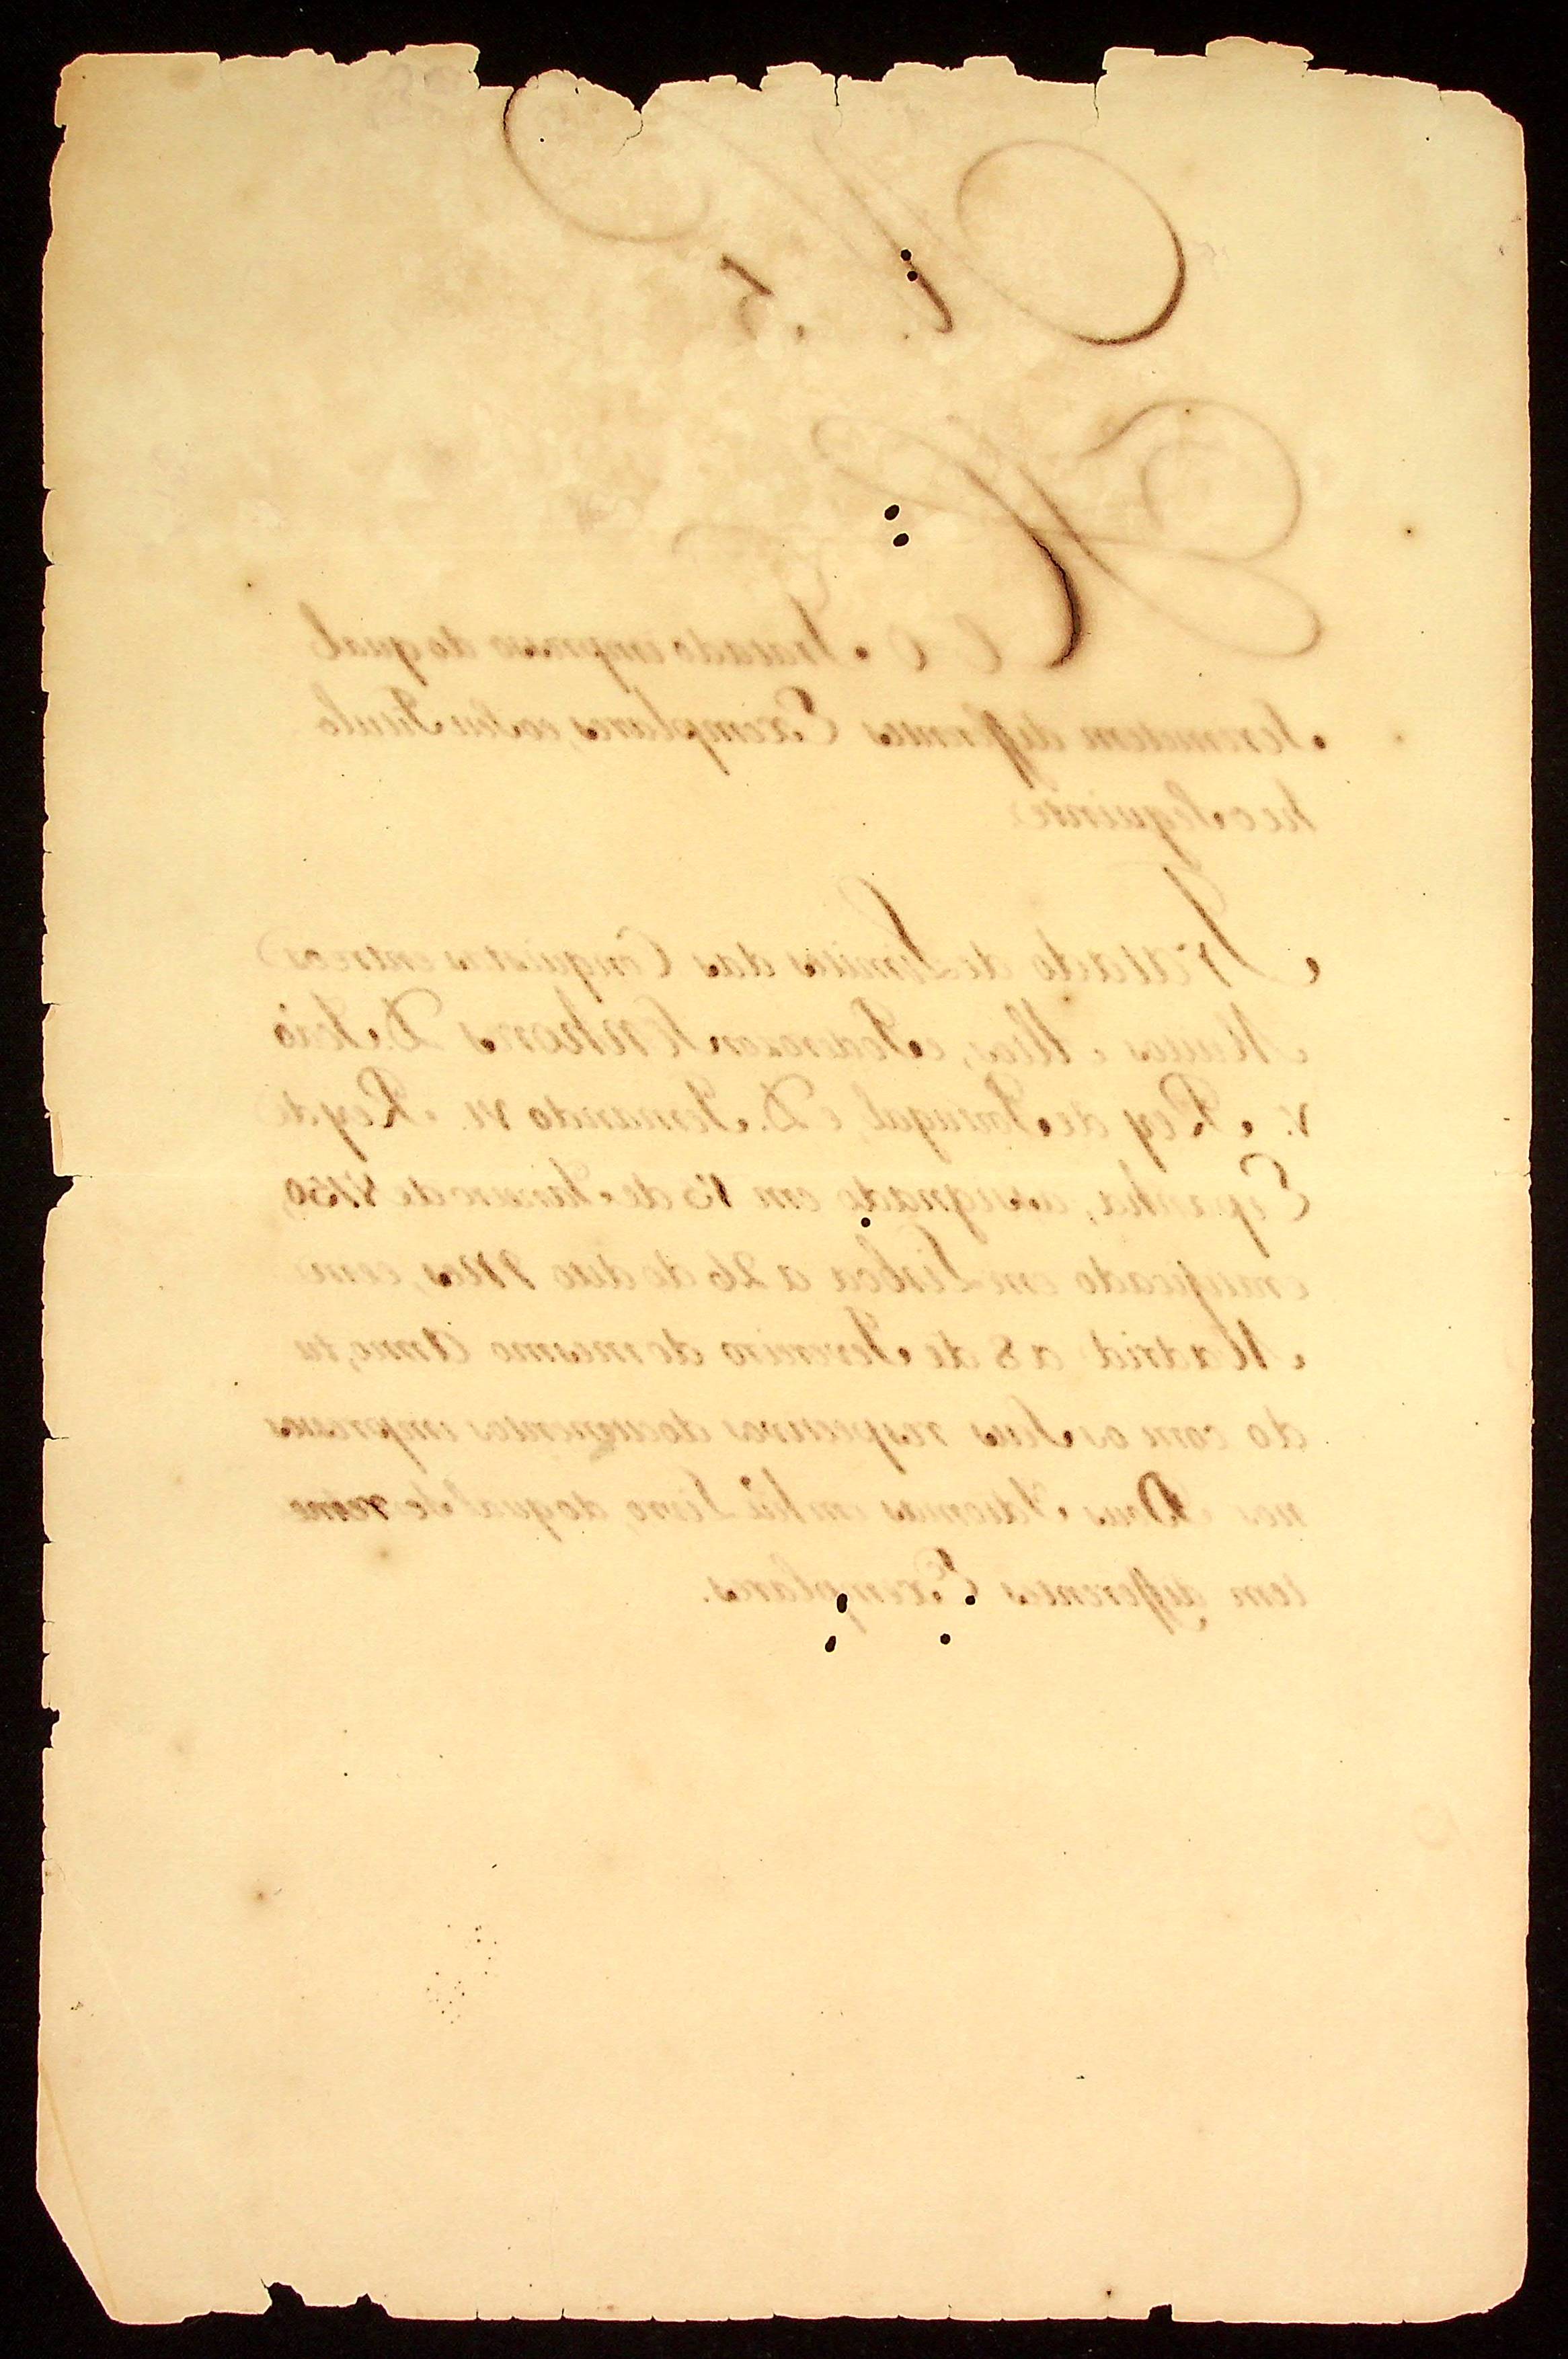 N. 5.
He o Tratado impresso do qual
se remetem differentes Exemplares, e o seu Titulo
he o seguinte
Tratado de Limites das Conquistas entre os
Muitos Altos, e Poderozos Senhores D. João
V. Rey de Portugal, e D. Fernando VI. Rey de
Espanha, assignado em 13 de Janeiro de 1750,
e ratificado em Lisboa a 26 do dito Mes, e em
Madrid a 8 de Fevereiro do mesmo Anno, tu
do com os seus respectivos documentos impressos
nos Dous Idiomas em hũ Livro, do qual se reme
tem differentes Exemplares.